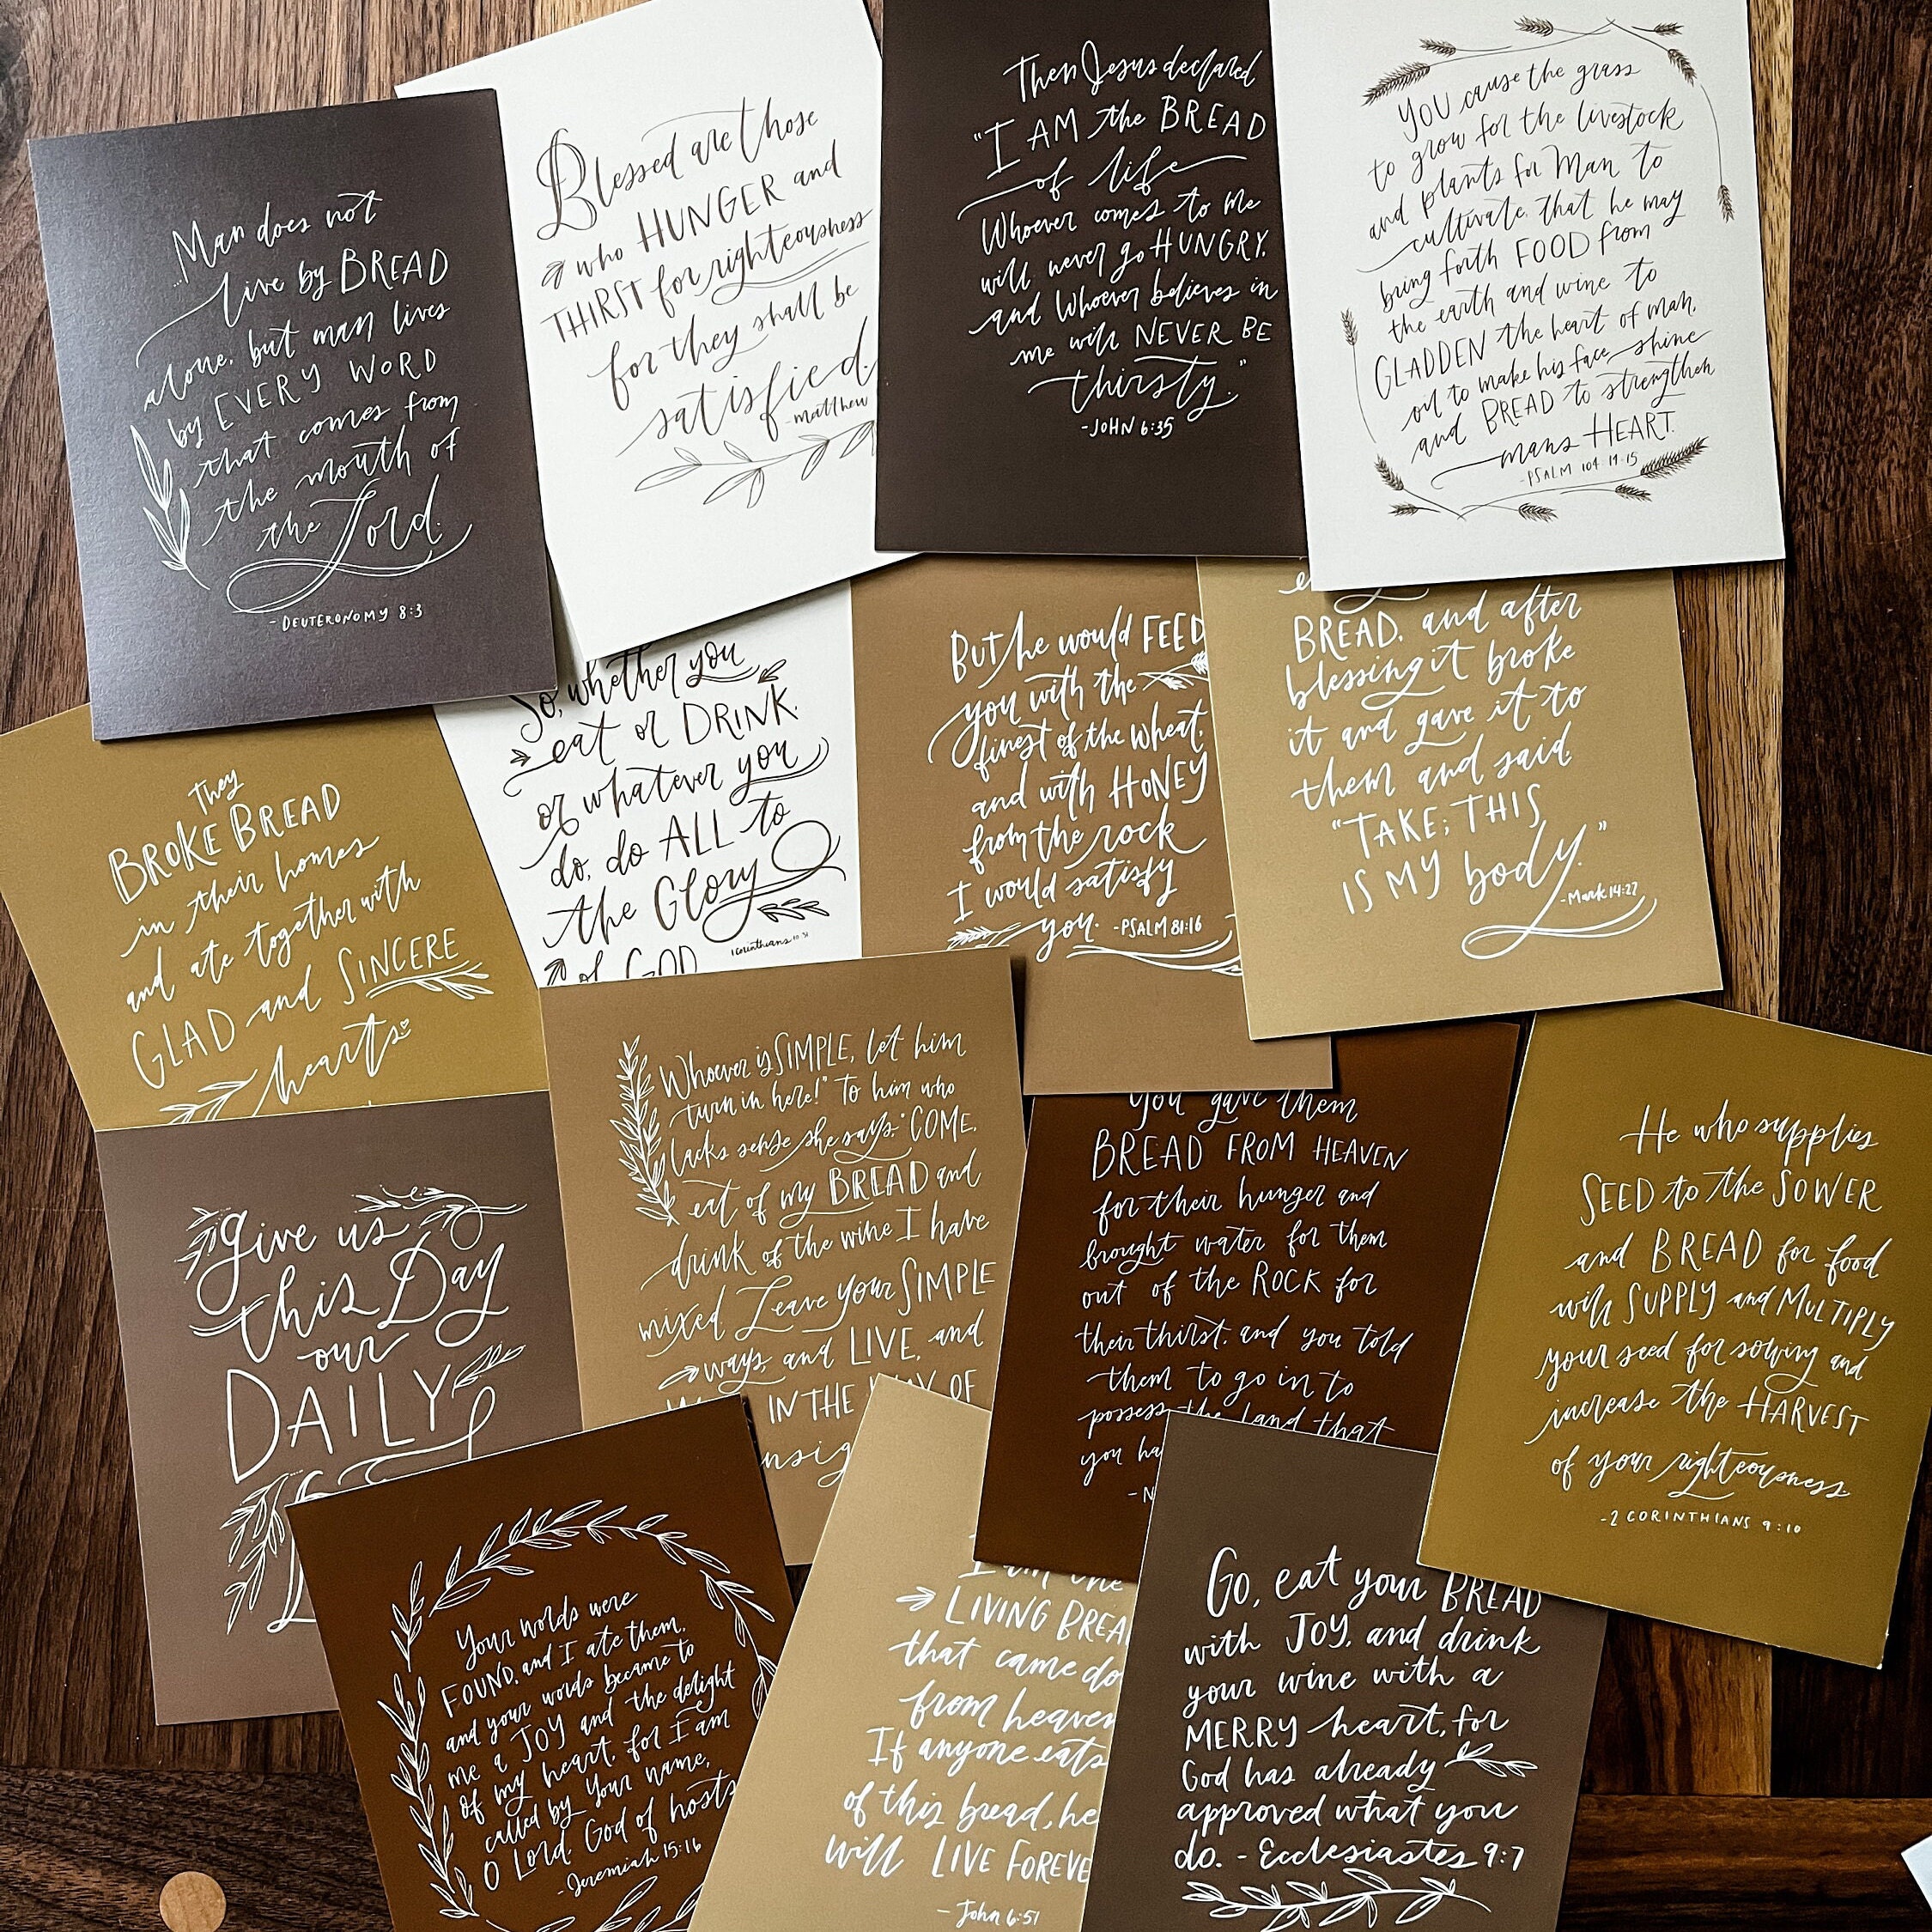 Man does not
live by BREAD
alone, but man lives
by EVERY WORD
that comes from
the mouth of
the Lord.
- DEUTERONOMY 8:3
Blessed are those
who HUNGER and
THIRST for righteousness
for they shall be
satisfied.
- matthew
Then Jesus declared
"I AM the BREAD
of life
Whoever comes to me
will never go HUNGRY,
and whoever believes in
me will NEVER BE
thirsty."
- JOHN 6:35
YOU cause the grass
to grow for the livestock
and plants for Man to
cultivate, that he may
bring forth FOOD from
the earth and wine to
GLADDEN the heart of man,
oil to make his face shine
and BREAD to strengthen
mans HEART.
- PSALM 104:14-15
They
BROKE BREAD
in their homes
and ate together with
GLAD and SINCERE
hearts
So, whether you
eat or DRINK,
or whatever you
do, do ALL to
the Glory
of GOD
1 Corinthians 10:31
But he would FEED
you with the
finest of the wheat,
and with HONEY
from the rock
I would satisfy
you. - PSALM 81:16
BREAD, and after
blessing it broke
it and gave it to
them and said,
"TAKE; THIS
IS MY body."
- Mark 14:22
give us
this Day
our
DAILY
Whoever is SIMPLE, let him
turn in here!" To him who
lacks sense she says, "COME,
eat of my BREAD and
drink of the wine I have
mixed Leave your SIMPLE
ways, and LIVE, and
IN THE WAY OF
You gave them
BREAD FROM HEAVEN
for their hunger and
brought water for them
out of the ROCK for
their thirst, and you told
them to go in to
possess the land that
you ha
He who supplies
SEED to the SOWER
and BREAD for food
will SUPPLY and MULTIPLY
your seed for sowing and
increase the HARVEST
of your righteousness
- 2 CORINTHIANS 9:10
Your words were
FOUND, and I ate them,
and your words became to
me a JOY and the delight
of my heart, for I am
called by Your name,
O Lord, God of hosts
- Jeremiah 15:16
I am the
LIVING BREA
that came do
from heaven
If anyone eats
of this bread, he
will LIVE FOREVE
- John 6:51
Go, eat your BREAD
with JOY, and drink
your wine with a
MERRY heart, for
God has already
approved what you
do. - Ecclesiastes 9:7